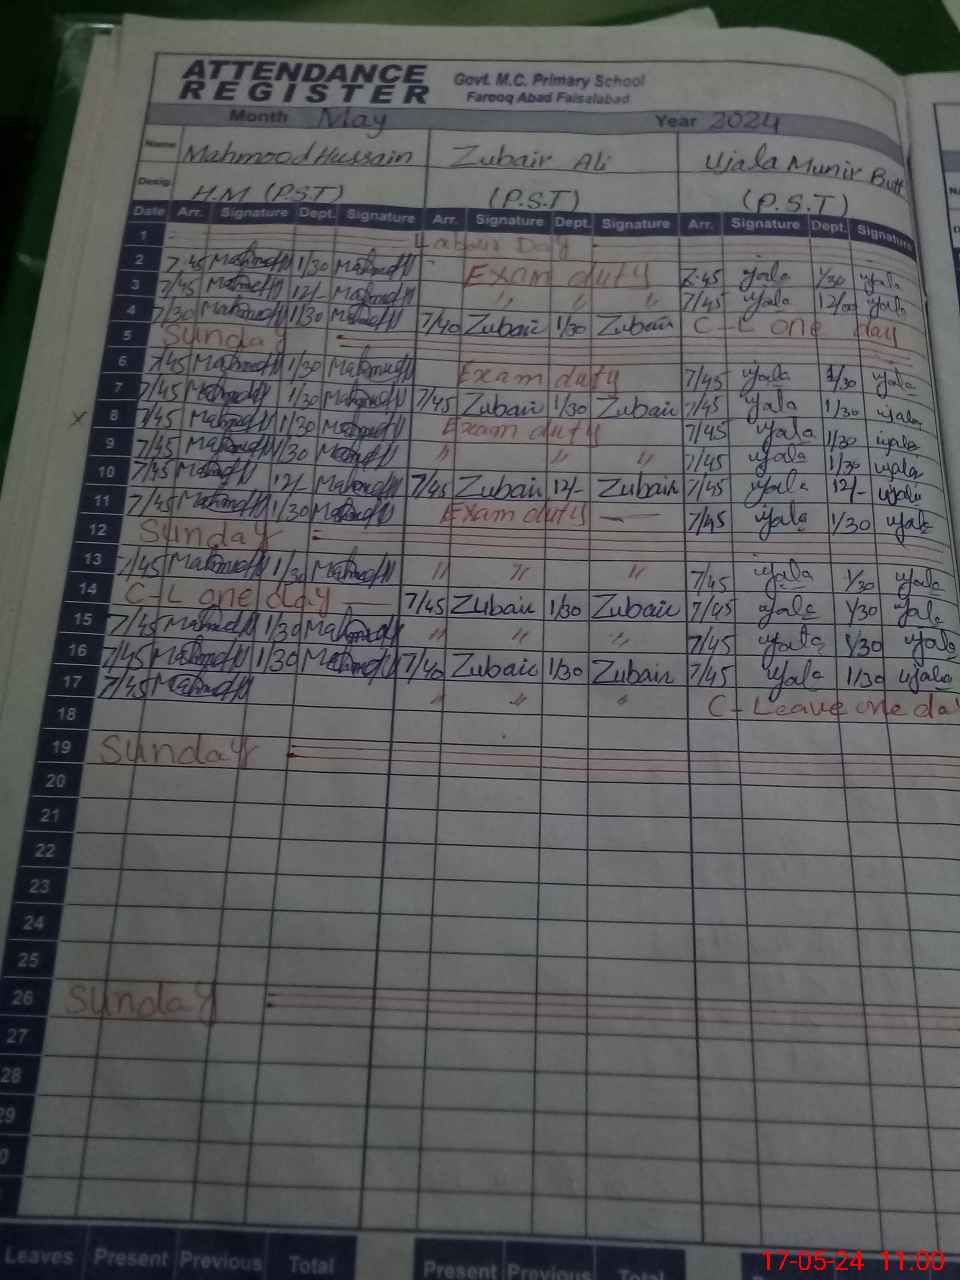 ATTENDANCE REGISTER Govt. M.C. Primary School Farooq Abad Faisalabad
Month May Year 2024
Name Mahmood Hussain Zubair Ali Ujala Munir Butt
Desig. H.M (P.S.T) (P.S.T) (P.S.T)
Date Arr. Signature Dept. Signature Arr. Signature Dept. Signature Arr. Signature Dept. Signature
1 Labour Day
2 7/45 1/30 Exam duty 7/45 ujala 1/30 ujala
3 7/45 12/- " " " 7/45 ujala 12/00 ujala
4 7/30 1/30 7/40 Zubair 1/30 Zubair C-L one day
5 Sunday
6 7/45 1/30 Exam duty 7/45 ujala 1/30 ujala
7 7/45 1/30 7/45 Zubair 1/30 Zubair 7/45 ujala 1/30 ujala
x 8 7/45 1/30 Exam duty 7/45 ujala 1/30 ujala
9 7/45 1/30 " " " 7/45 ujala 1/30 ujala
10 7/45 12/- 7/45 Zubair 12/- Zubair 7/45 ujala 12/- ujala
11 7/45 1/30 Exam duty 7/45 ujala 1/30 ujala
12 Sunday
13 7/45 1/30 " " " 7/45 ujala 1/30 ujala
14 C-L one day 7/45 Zubair 1/30 Zubair 7/45 ujala 1/30 ujala
15 7/45 1/30 " " " 7/45 ujala 1/30 ujala
16 7/45 1/30 7/40 Zubair 1/30 Zubair 7/45 ujala 1/30 ujala
17 7/45 " " " C-Leave one day
18
19 Sunday
20
21
22
23
24
25
26 Sunday
27
28
29
0
Leaves Present Previous Total Present Previous Total
17-05-24 11:00